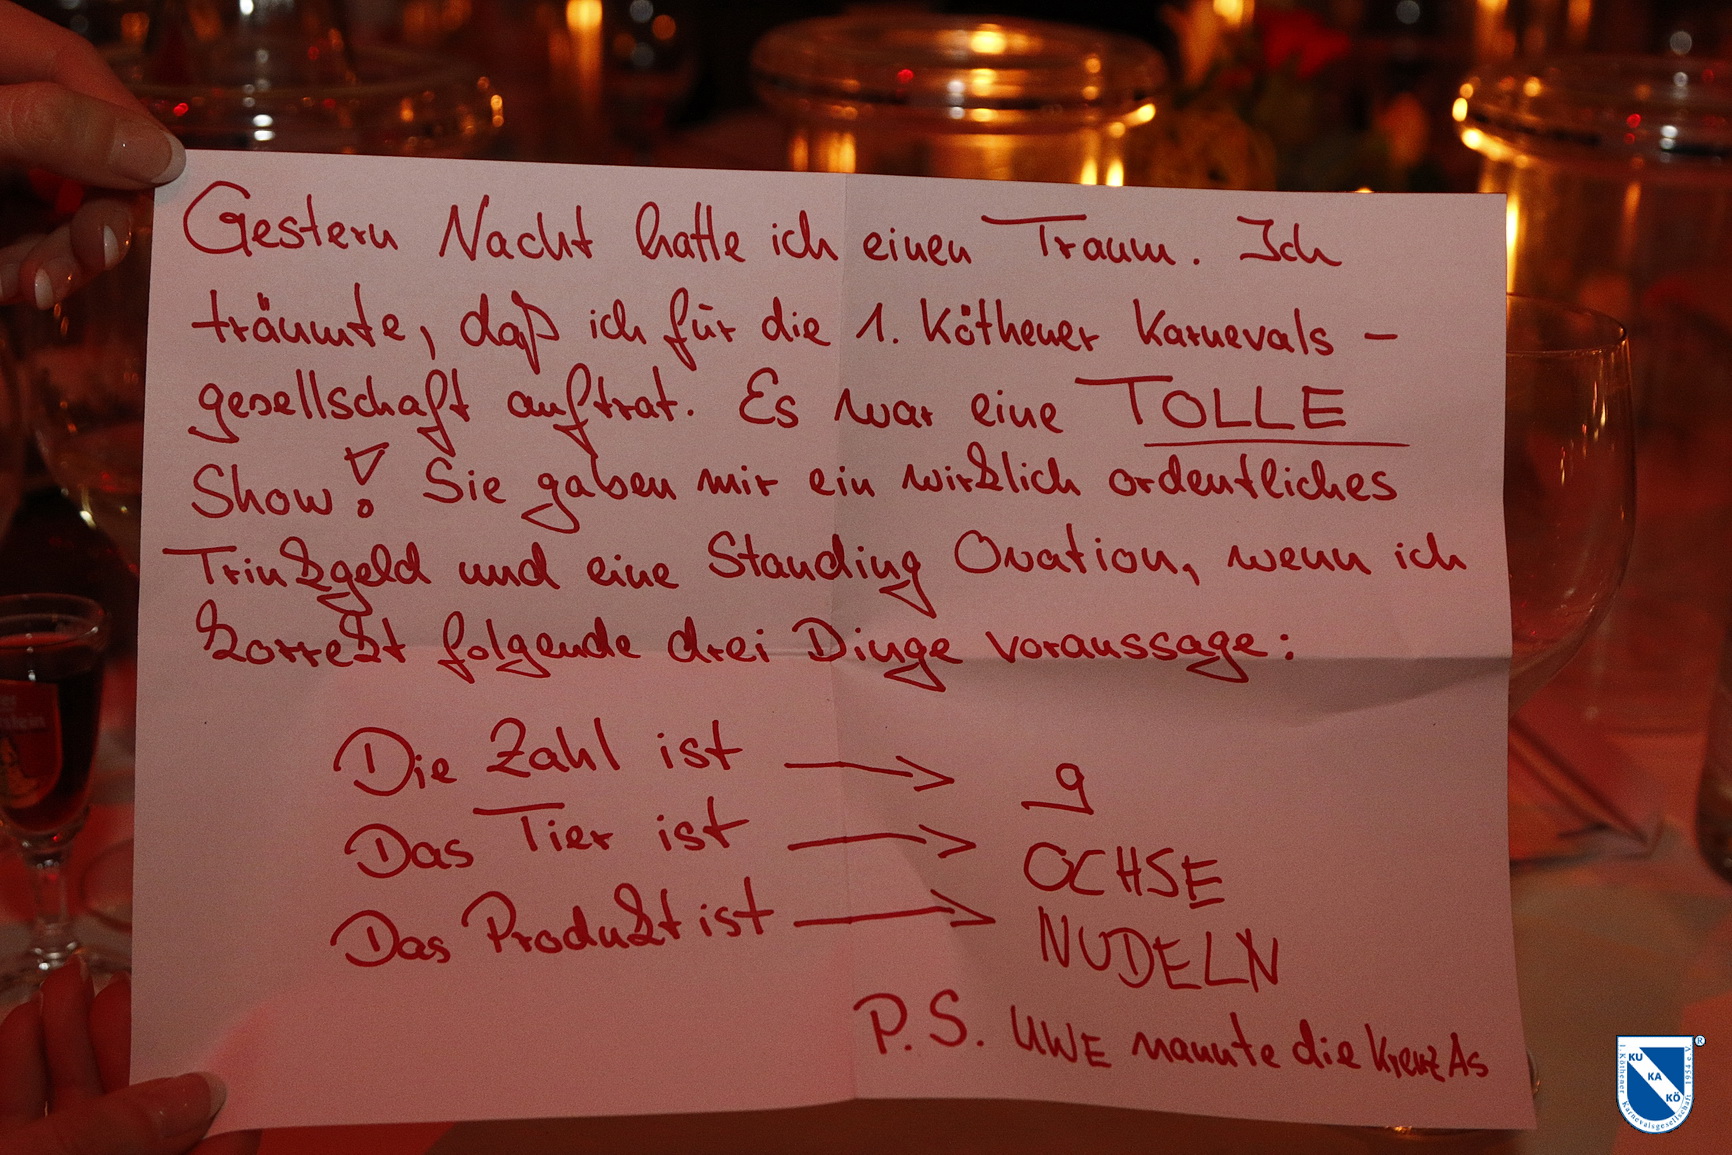 Gestern Nacht hatte ich einen Traum. Ich
träumte, daß ich für die 1. Köthener Karnevals -
gesellschaft auftrat. Es war eine TOLLE
Show! Sie gaben mir ein wirklich ordentliches
Trinkgeld und eine Standing Ovation, wenn ich
korrekt folgende drei Dinge voraussage:
Die Zahl ist → 9
Das Tier ist → OCHSE
Das Produkt ist → NUDELN
P.S. UWE nannte die Kreuz As
KU
KA
KÖ
1. Köthener Karnevalsgesellschaft 1954 e.V.
®